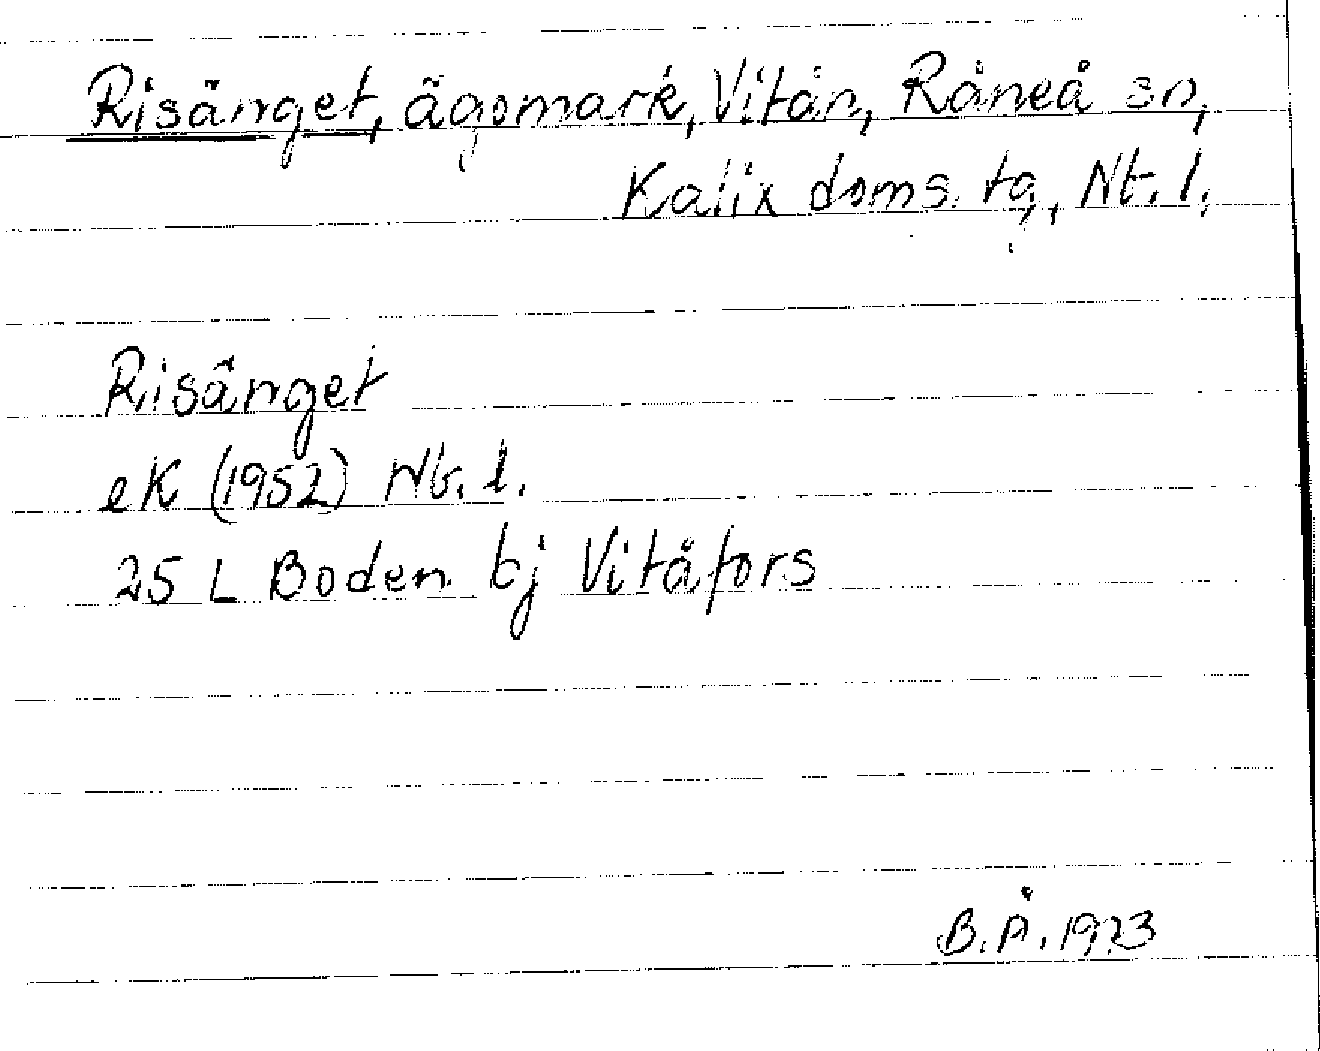 Risänget, ägomark, Vitån, Råneå sn,
Kalix doms. tg, Nb. l.
Risänget
eK (1952) Nb. l.
25 L Boden bj Vitåfors
B.Å. 1973